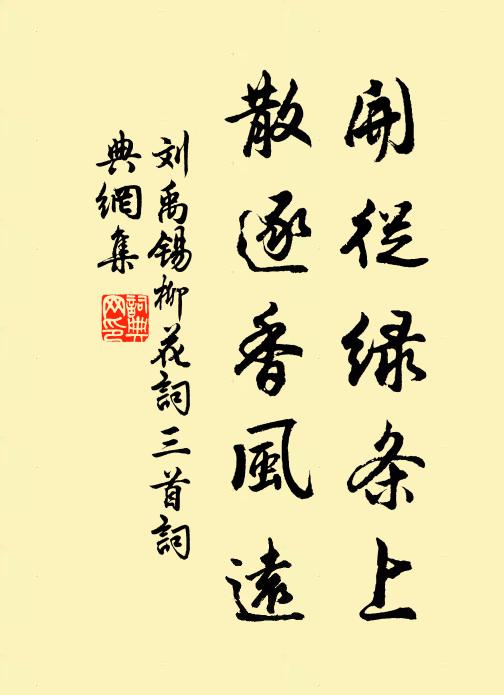 開從緑条上
散逐香風遠
刘禹锡柳花詞三首詞
典網集
詞典网印